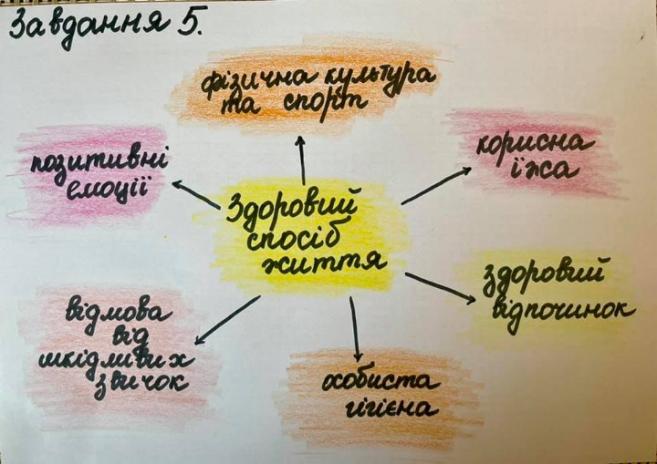 Завдання 5.
фізична культура
та спорт
позитивні
емоції
корисна
їжа
Здоровий
спосіб
життя
здоровий
відпочинок
відмова
від
шкідливих
звичок
хобиста
гігієна